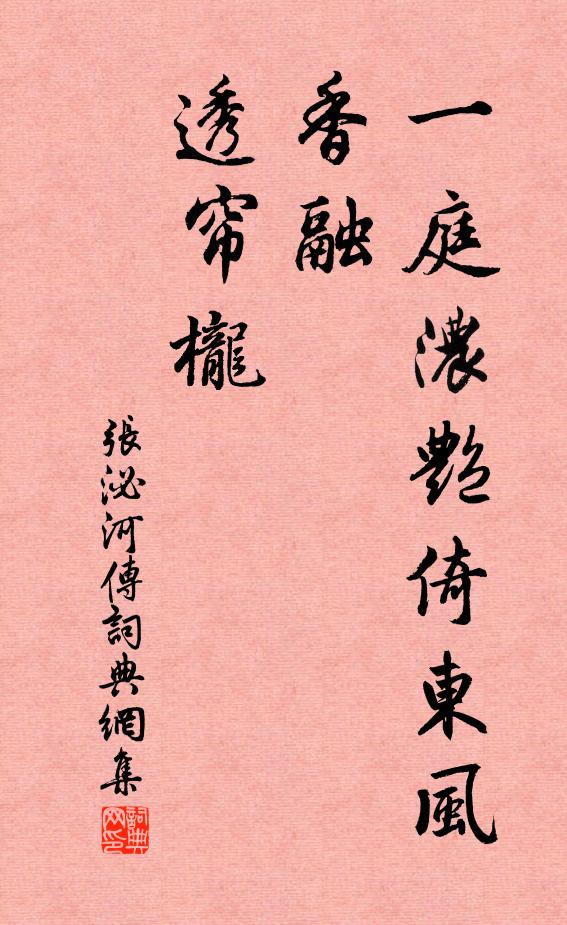 一庭濃艷倚東風
香融
透帘櫳
張泌河傳詞典網集
詞典网印